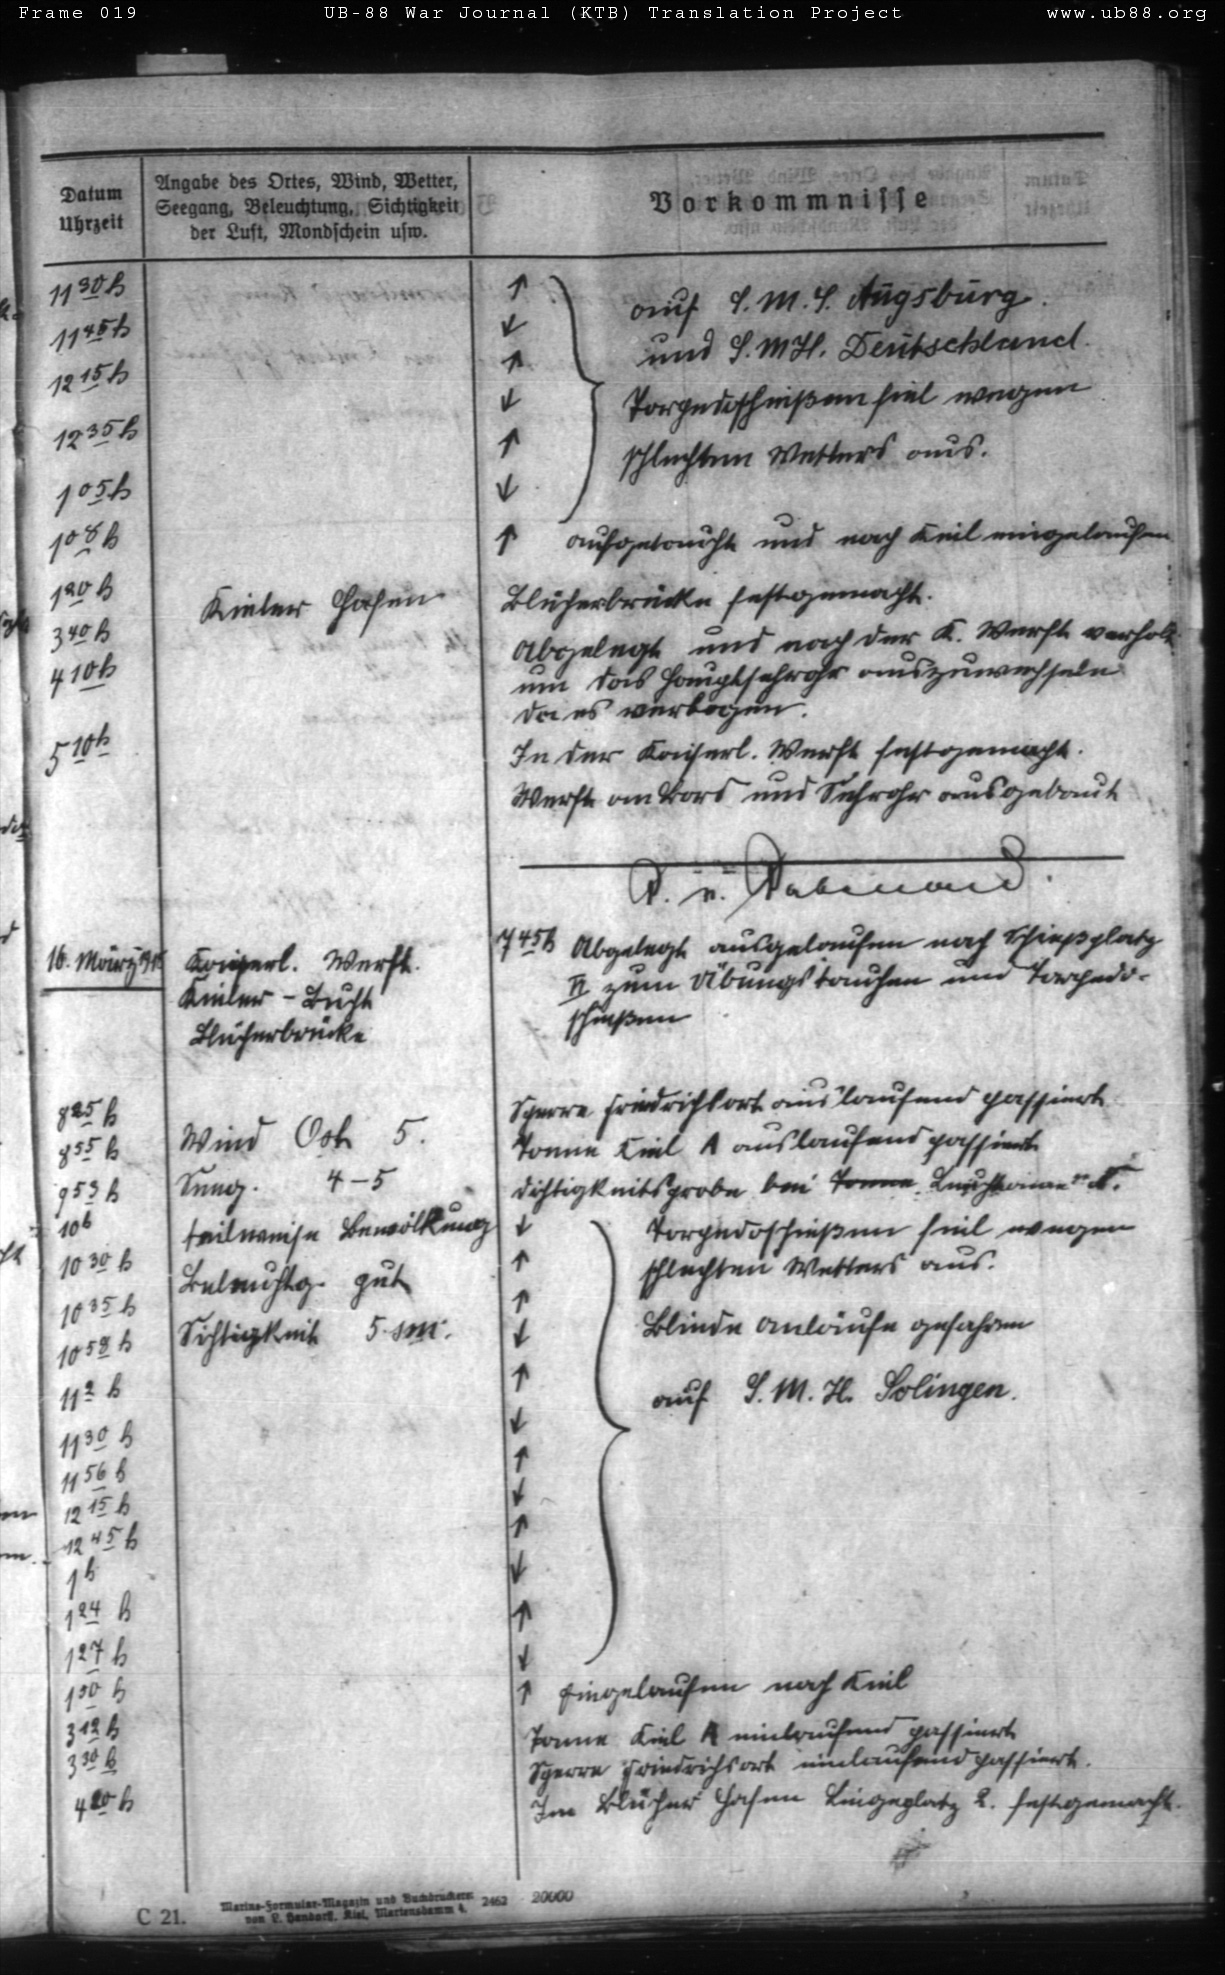 Frame 019 UB-88 War Journal (KTB) Translation Project www.ub88.org
Datum
Uhrzeit
Angabe des Ortes, Wind, Wetter,
Seegang, Beleuchtung, Sichtigkeit
der Luft, Mondschein usw.
Vorkommnisse
11 30 h ↑ auf S.M.S. Augsburg.
11 45 h ↓ und S.M.H. Deutschland.
12 15 h ↑
↓ Torpedoschießen fiel wegen
12 35 h ↑ schlechten Wetters aus.
1 05 h ↓
1 08 h ↑ aufgetaucht und nach Kiel eingelaufen
1 20 h Kieler Hafen Blücherbrücke festgemacht.
3 40 h Abgelegt und nach der K. Werft verholt
4 10 h um das Hauptsehrohr auszuwechseln
da es verbogen.
5 10 h In der Kaiserl. Werft festgemacht.
Werft an Bord und Sehrohr ausgebaut
16. März Kaiserl. Werft. 7 45 h Abgelegt ausgelaufen nach Schießplatz
Kieler-Bucht VI zum Übungstauchen und Torpedo-
Blücherbrücke schießen
8 25 h Sperre Friedrichsort auslaufend passiert
8 55 h Wind Ost 5. Tonne Kiel A auslaufend passiert
9 53 h Seeg. 4-5 Dichtigkeitsprobe bei Tonne
10 h teilweise Bewölkung ↓ Torpedoschießen fiel wegen
10 30 h ↑ schlechten Wetters aus.
Beleuchtg. gut
10 35 h ↑
10 58 h Sichtigkeit 5 sm. ↓ Blinde Anläufe gefahren
11 2 h ↑ auf S.M.H. Solingen.
11 30 h ↓
11 56 h ↑
12 15 h ↓
12 45 h ↑
1 h ↓
1 24 h ↑
1 27 h ↓
1 50 h ↑ Eingelaufen nach Kiel
3 12 h Tonne Kiel A einlaufend passiert
3 30 h Sperre Friedrichsort einlaufend passiert.
4 20 h Im Blücher Hafen Liegeplatz 2. festgemacht.
C 21.
Marine-Formular-Magazin und Buchdruckerei
von L. Handorff, Kiel, Martensdamm 4.
2462 20000